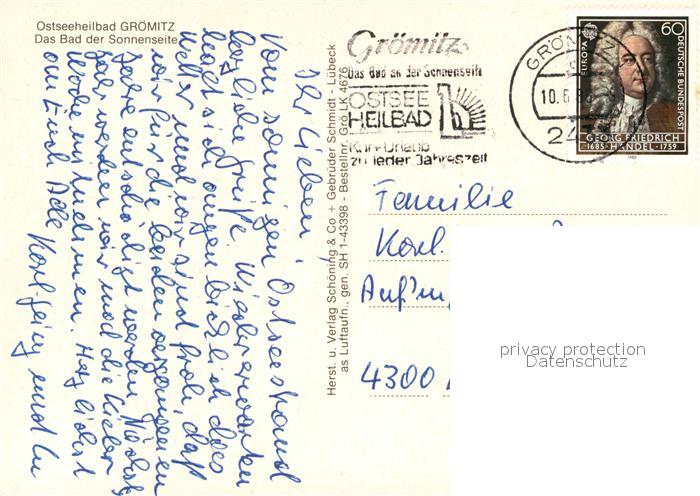 Ostseeheilbad GRÖMITZ
Das Bad der Sonnenseite
Ihr Lieben!
Vom sonnigen Ostseestrand
herzliche Grüße. Wider erwarten
hält sich augenblicklich das
Wetter und wir sind froh, daß
wir für die beiden vergangenen
Jahre entschädigt werden. Nächste
Woche
Herzlichst
an Euch Alle Karl-Heinz und
Herst. u. Verlag Schöning & Co + Gebrüder Schmidt - Lübeck
as Luftaufn., gen. SH 1-43398 - Bestellnr. Grö LK 4676
Grömitz
Das Bad an der Sonnenseite
OSTSEE
HEILBAD
Kurz-Urlaub
zu jeder Jahreszeit
GRÖMITZ
10.6.8
24
EUROPA
60
DEUTSCHE BUNDESPOST
GEORG FRIEDRICH
1685 · HÄNDEL · 1759
1985
Familie
Karl
4300
privacy protection
Datenschutz